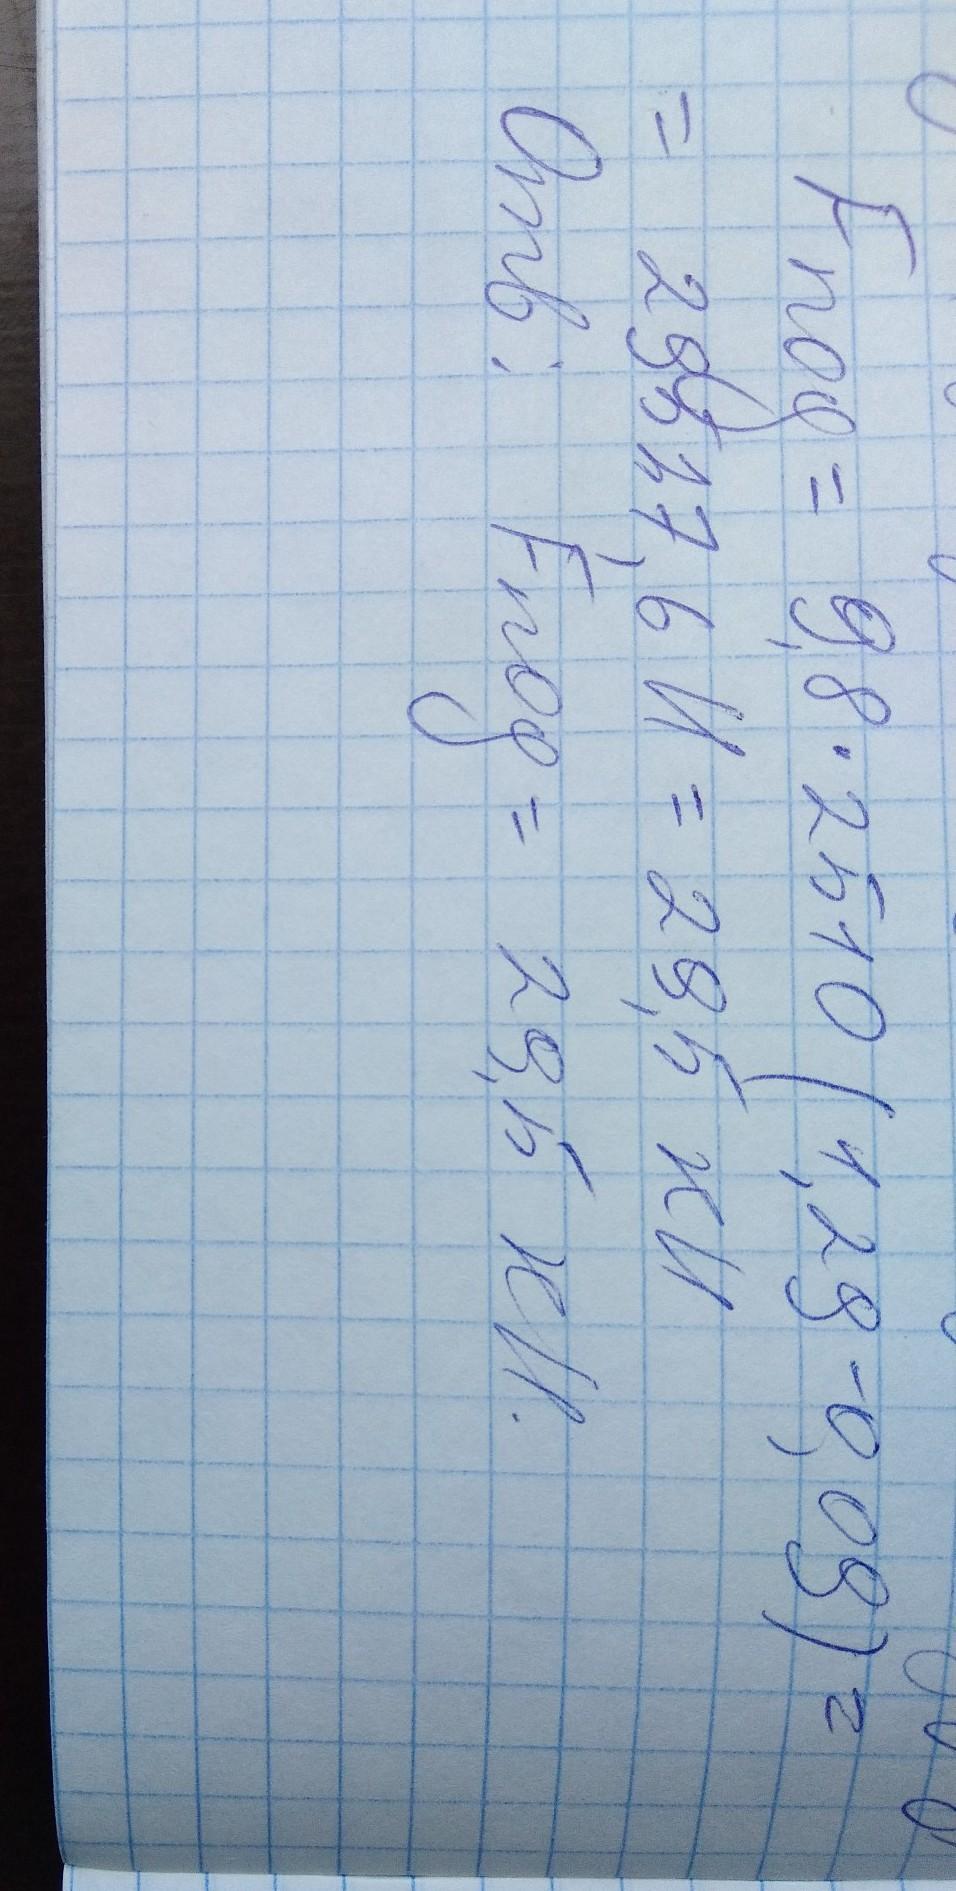 Fпод = 9,8 · 2510 (1,29 - 0,09) =
= 29517,6 Н = 29,5 кН
Отв: Fпод = 29,5 кН.